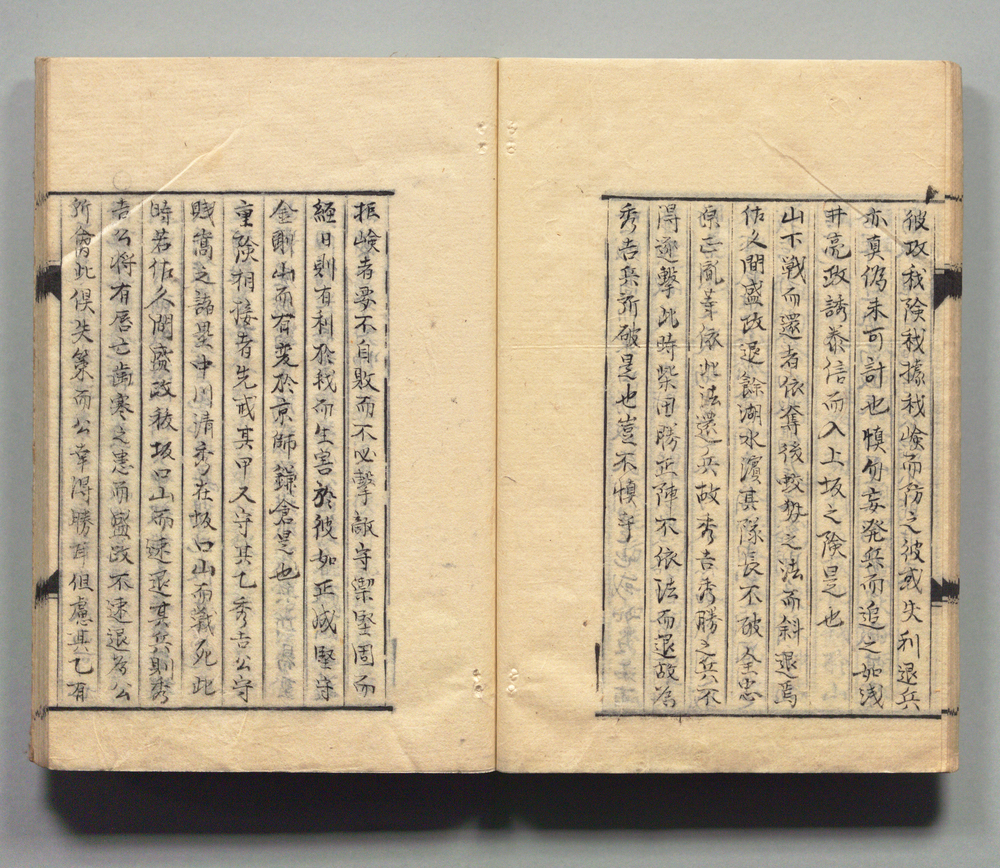 彼攻我険我據我嶮而防之彼或失利退兵
亦真偽未可計也慎勿妄発兵而追之如浅
井亮政誘恭信而入上坂之険是也
山下戦而還者依奪後蛟勢之法而斜退焉
佐久間盛政退餘湖水濱其隊長不破全忠
原正胤等依此法還兵故秀吉秀勝之兵不
得逐撃此時柴田勝正陣不依法而退故為
秀吉兵所破是也豈不慎乎
拒嶮者要不自敗而不必撃敵守禦堅固而
經日則有利於我而生害於彼如正成堅守
金剛山而有変於京師鎌倉是也
重険相接者先戒其甲又守其乙秀吉公守
賤嵩之諸塁中川清秀在坂口山而戦死此
時若佐久間盛政被坂口山而速退其兵則秀
吉公将有唇亡歯寒之患而盛政不速退為公
所會此倶失策而公幸得勝耳但慮其乙有